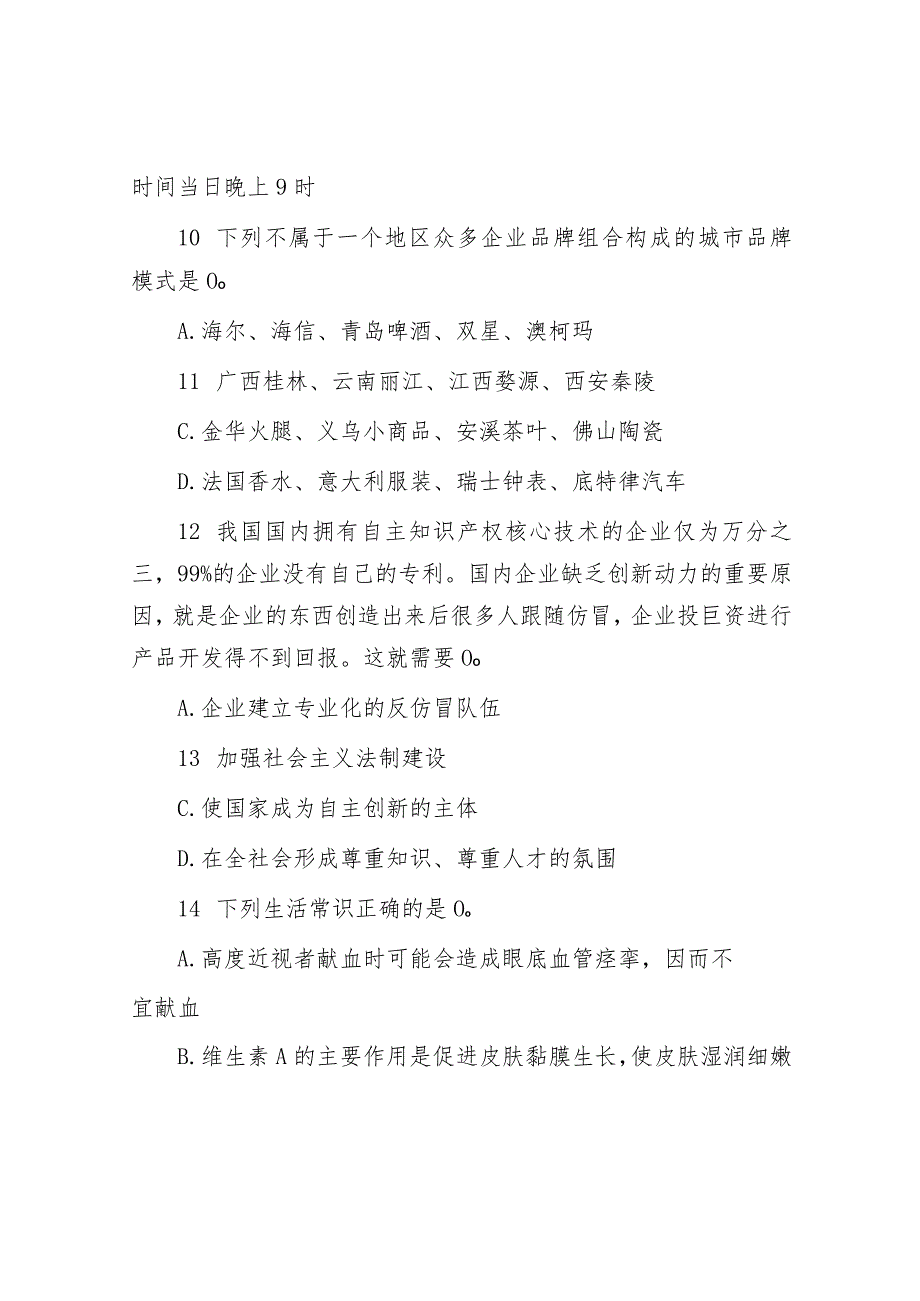 时间当日晚上9时
10 下列不属于一个地区众多企业品牌组合构成的城市品牌
模式是O。
A.海尔、海信、青岛啤酒、双星、澳柯玛
11 广西桂林、云南丽江、江西婺源、西安秦陵
C.金华火腿、义乌小商品、安溪茶叶、佛山陶瓷
D.法国香水、意大利服装、瑞士钟表、底特律汽车
12 我国国内拥有自主知识产权核心技术的企业仅为万分之
三，99%的企业没有自己的专利。国内企业缺乏创新动力的重要原
因，就是企业的东西创造出来后很多人跟随仿冒，企业投巨资进行
产品开发得不到回报。这就需要O。
A.企业建立专业化的反仿冒队伍
13 加强社会主义法制建设
C.使国家成为自主创新的主体
D.在全社会形成尊重知识、尊重人才的氛围
14 下列生活常识正确的是O。
A.高度近视者献血时可能会造成眼底血管痉挛，因而不
宜献血
B.维生素A的主要作用是促进皮肤黏膜生长，使皮肤湿润细嫩